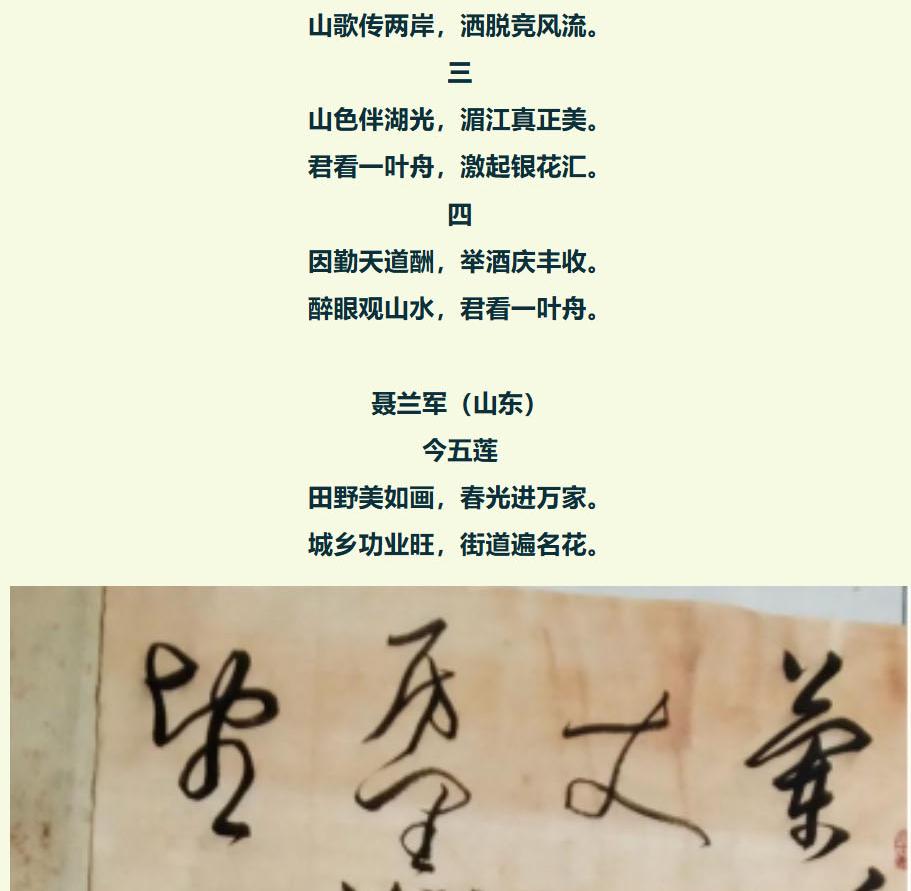 山歌传两岸，洒脱竞风流。
三
山色伴湖光，湄江真正美。
君看一叶舟，激起银花汇。
四
因勤天道酬，举酒庆丰收。
醉眼观山水，君看一叶舟。
聂兰军（山东）
今五莲
田野美如画，春光进万家。
城乡功业旺，街道遍名花。